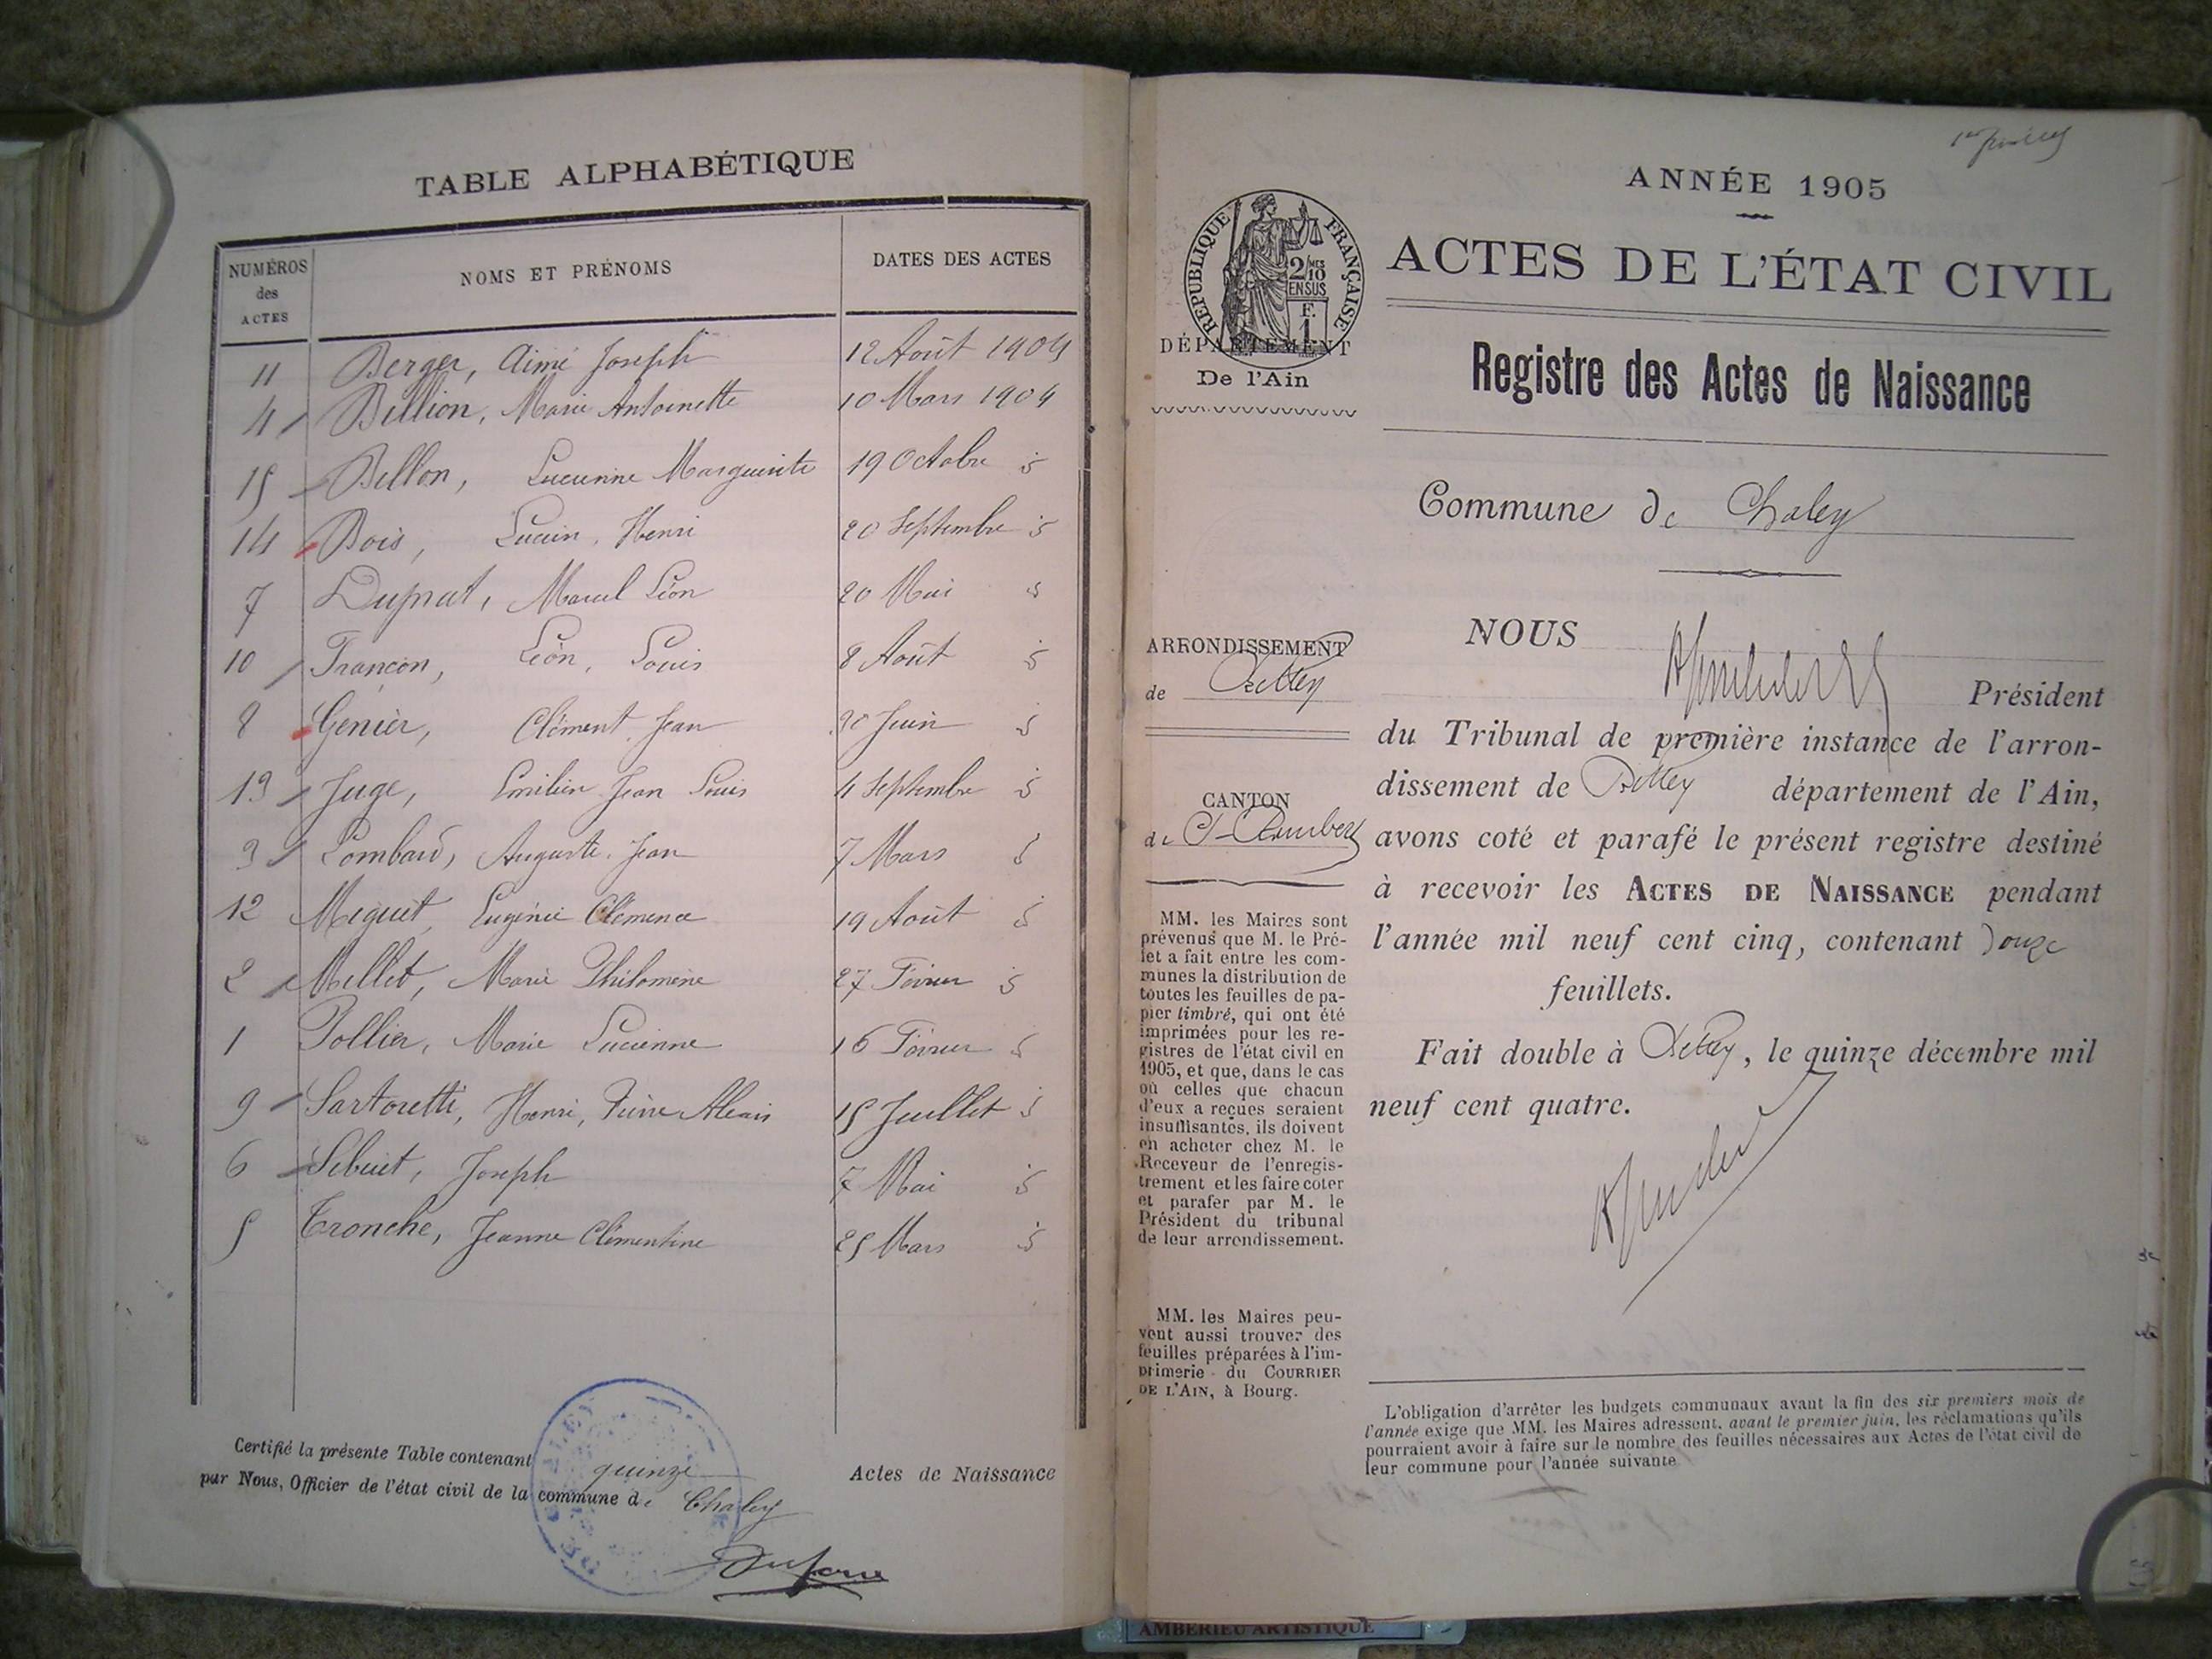 TABLE ALPHABÉTIQUE
NUMÉROS des ACTES
NOMS ET PRÉNOMS
DATES DES ACTES
11 Berger, Aimé Joseph 12 Août 1904
4 Billion, Marie Antoinette 10 Mars 1904
15 Bellon, Lucienne Marguerite 19 Octobre
14 Bois, Lucien, Henri 20 Septembre
7 Duprat, Marcel Léon 20 Mai
10 Francon, Léon, Louis 8 Août
8 Génier, Clément Jean 20 Juin
13 Juge, Emilien Jean Louis 4 Septembre
3 Lombard, Auguste Jean 7 Mars
12 Meguet, Eugénie Clémence 19 Août
2 Mellet, Marie Philomène 27 Février
1 Pollier, Marie Lucienne 16 Février
9 Sartoretti, Henri, Pierre 15 Juillet
6 Sibuet, Joseph 7 Mai
5 Tronche, Jeanne Clémentine 25 Mars
Certifié la présente Table contenant quinze Actes de Naissance
par Nous, Officier de l'état civil de la commune de Chaley
ANNÉE 1905
RÉPUBLIQUE FRANÇAISE
2/10 EN SUS
F. 1
ACTES DE L'ÉTAT CIVIL
DÉPARTEMENT
De l'Ain
Registre des Actes de Naissance
Commune de Chaley
ARRONDISSEMENT
de Belley
CANTON
de St-Rambert
MM. les Maires sont
prévenus que M. le Pré-
fet a fait entre les com-
munes la distribution de
toutes les feuilles de pa-
pier timbré, qui ont été
imprimées pour les re-
gistres de l'état civil en
1905, et que, dans le cas
où celles que chacun
d'eux a reçues seraient
insuffisantes, ils doivent
en acheter chez M. le
Receveur de l'enregis-
trement et les faire coter
et parafer par M. le
Président du tribunal
de leur arrondissement.
MM. les Maires peu-
vent aussi trouver des
feuilles préparées à l'im-
primerie du COURRIER
DE L'AIN, à Bourg.
NOUS
Président
du Tribunal de première instance de l'arron-
dissement de Belley département de l'Ain,
avons coté et parafé le présent registre destiné
à recevoir les ACTES DE NAISSANCE pendant
l'année mil neuf cent cinq, contenant Douze
feuillets.
Fait double à Belley, le quinze décembre mil
neuf cent quatre.
L'obligation d'arrêter les budgets communaux avant la fin des six premiers mois de
l'année exige que MM. les Maires adressent, avant le premier juin, les réclamations qu'ils
pourraient avoir à faire sur le nombre des feuilles nécessaires aux Actes de l'état civil de
leur commune pour l'année suivante
AMBERIEU ARTISTIQUE